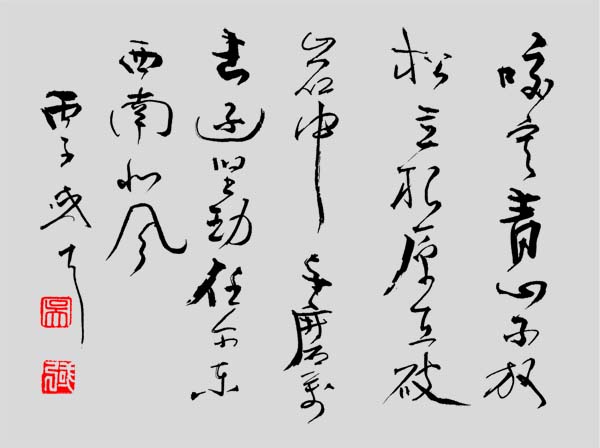 咬定青山不放
松立根原在破
岩中千磨萬
击还坚劲任尔东
西南北风